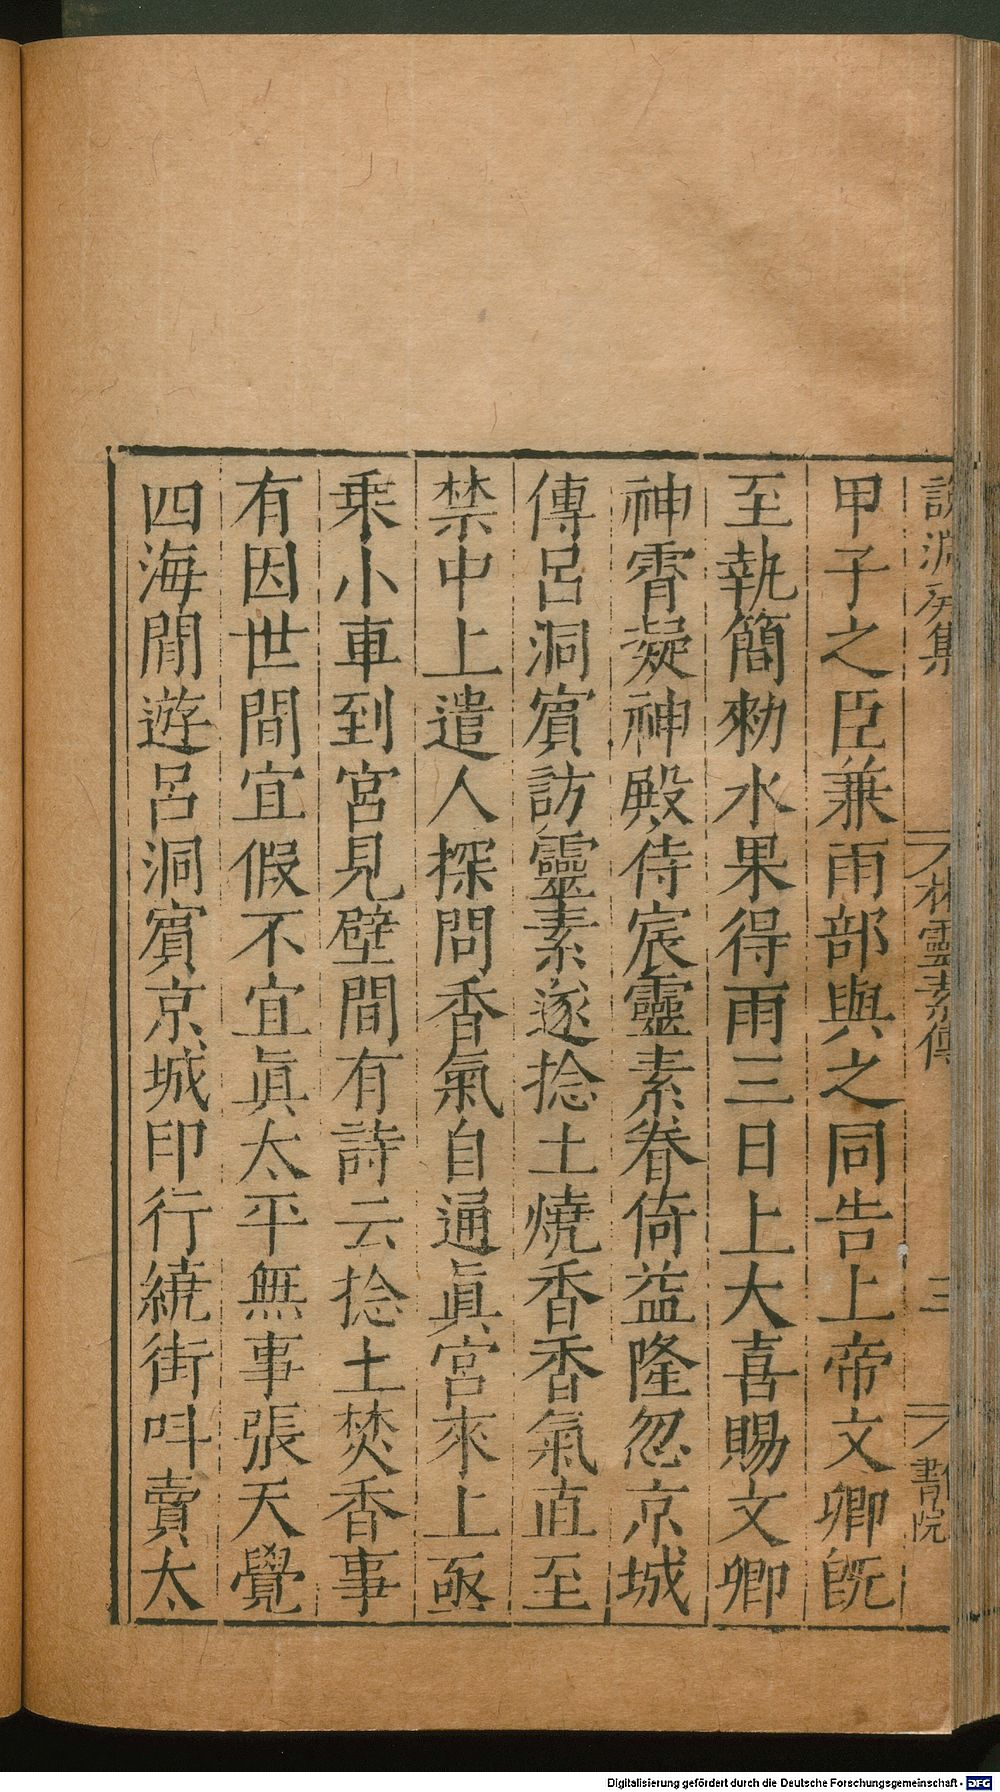 說淵癸集 林靈素傳 三 書院
甲子之臣兼雨部與之同告上帝文卿旣
至執簡勑水果得雨三日上大喜賜文卿
神霄凝神殿侍宸靈素眷倚益隆忽京城
傳呂洞賔訪靈素遂捻土燒香香氣直至
禁中上遣人探問香氣自通眞宮來上亟
乗小車到宮見壁間有詩云捻土焚香事
有因世間宜假不宜眞太平無事張天覺
四海閒遊呂洞賔京城印行繞街呌賣太
Digitalisierung gefördert durch die Deutsche Forschungsgemeinschaft - DFG